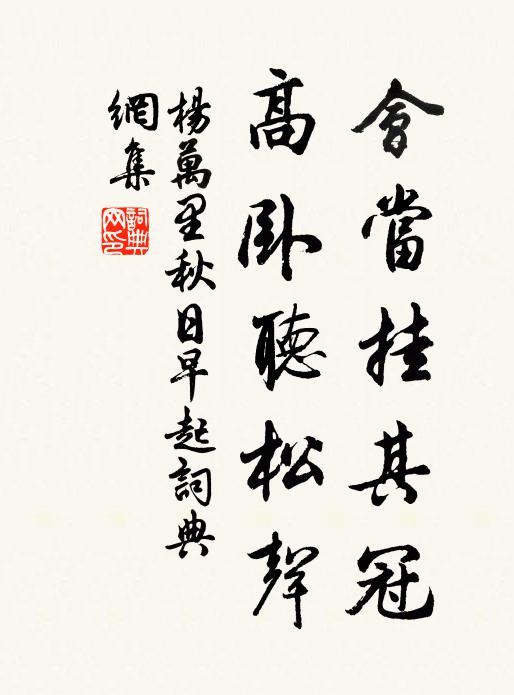 會當挂其冠
高卧聽松聲
楊萬里秋日早起詞典
網集
詞典網印